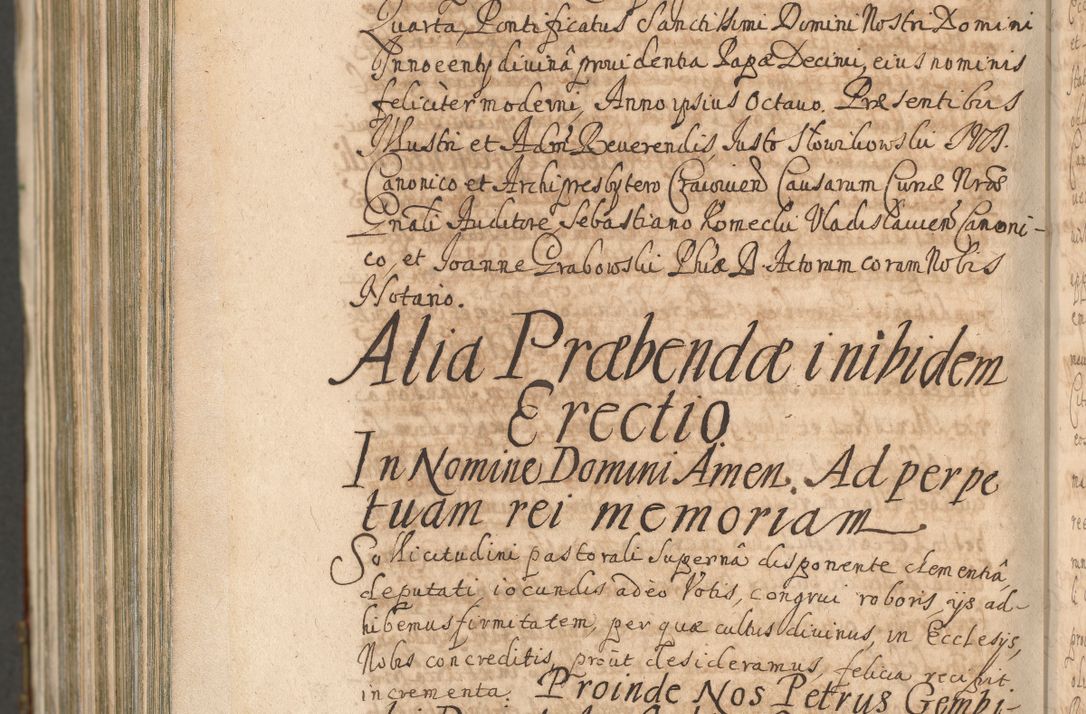 Quarta, Pontificatus Sanctissimi Domini Nostri Domini
Innocentij divinâ providentia Papæ Decimi, eius nominis
felicitèr moderni, Anno ipsius Octauo. Præsentibus
Illustri et Adm Reuerendis, Justo Słowikowski
Canonico et Archipresbytero Cracouien Causarum Curiæ Nræ
Gnali Auditore, Sebastiano Komecki Vladislauien Canoni-
co, et Joanne Grabowski Phiæ D. Actorum coram Nobis
Notario.
Alia Præbendæ inibidem
Erectio
In Nomine Domini Amen. Ad perpe
tuam rei memoriam
Sollicitudini pastorali supernâ disponente clementiâ,
deputati, iocundis adeo Votis, congrui roboris, ijs ad-
hibemus firmitatem, per quæ cultus diuinus, in Ecclesijs,
Nobis concreditis, proût desideramus, felicia recipit
incrementa. Proinde Nos Petrus Gembi-